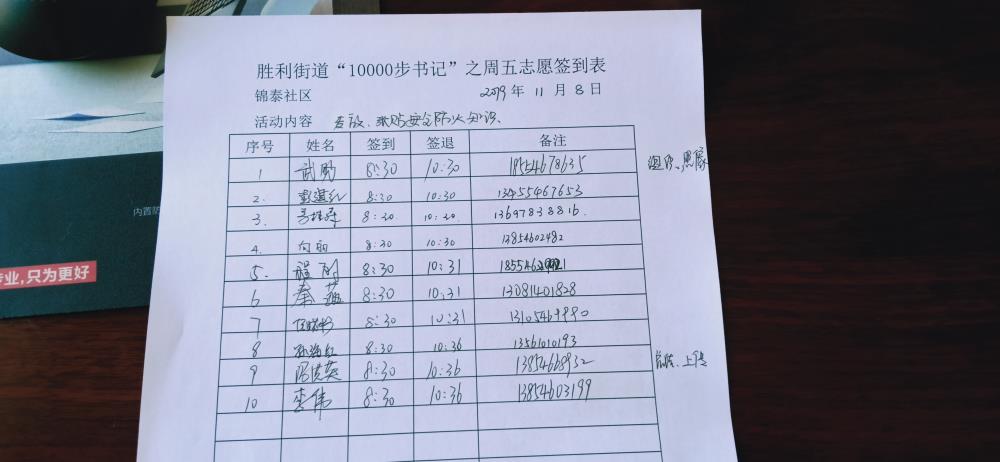 胜利街道“10000步书记”之周五志愿签到表
锦泰社区 2019年 11月 8日
活动内容 发放、张贴安全防火知识、
序号 姓名 签到 签退 备注
1 武勇 8:30 10:30 18554678635
2. 8:30 10:30 13455467653
3. 8:30 10:30 13697838816.
4. 向丽 8:30 10:30 13854602482
5. 程 8:30 10:31
6 秦 8:30 10:31 13081401828
7 8:30 10:31
8 孙海红 8:30 10:36 13561010193
9 洪英 8:30 10:36 13854668932
10 李伟 8:30 10:36 13854603199
内置防
专业,只为更好